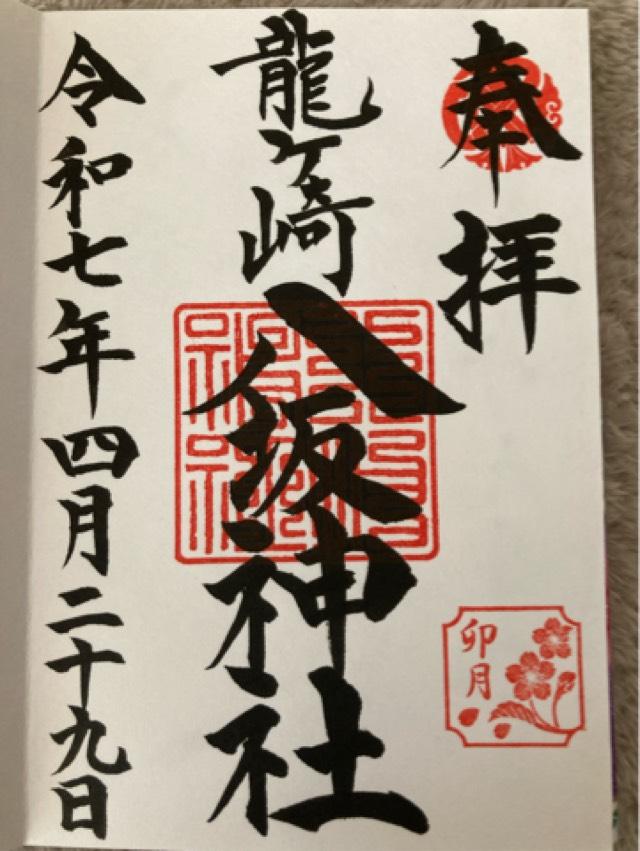 奉拝
龍ヶ崎
八坂神社
令和七年四月二十九日
卯月